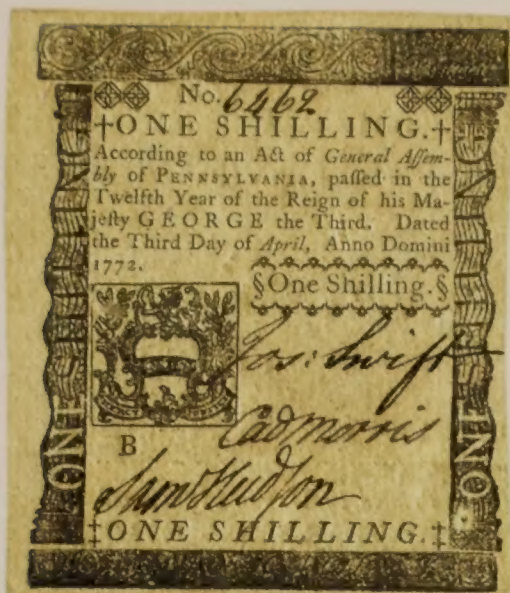 No. 6462
†ONE SHILLING.†
According to an Act of General Aſſem-
bly of PENNSYLVANIA, paſſed in the
Twelfth Year of the Reign of his Ma-
jeſty GEORGE the Third. Dated
the Third Day of April, Anno Domini
1772.
§One Shilling.§
Jos: Swift
B
Cad Morris
Sam Hudſon
‡ONE SHILLING.‡
ONE
ONE